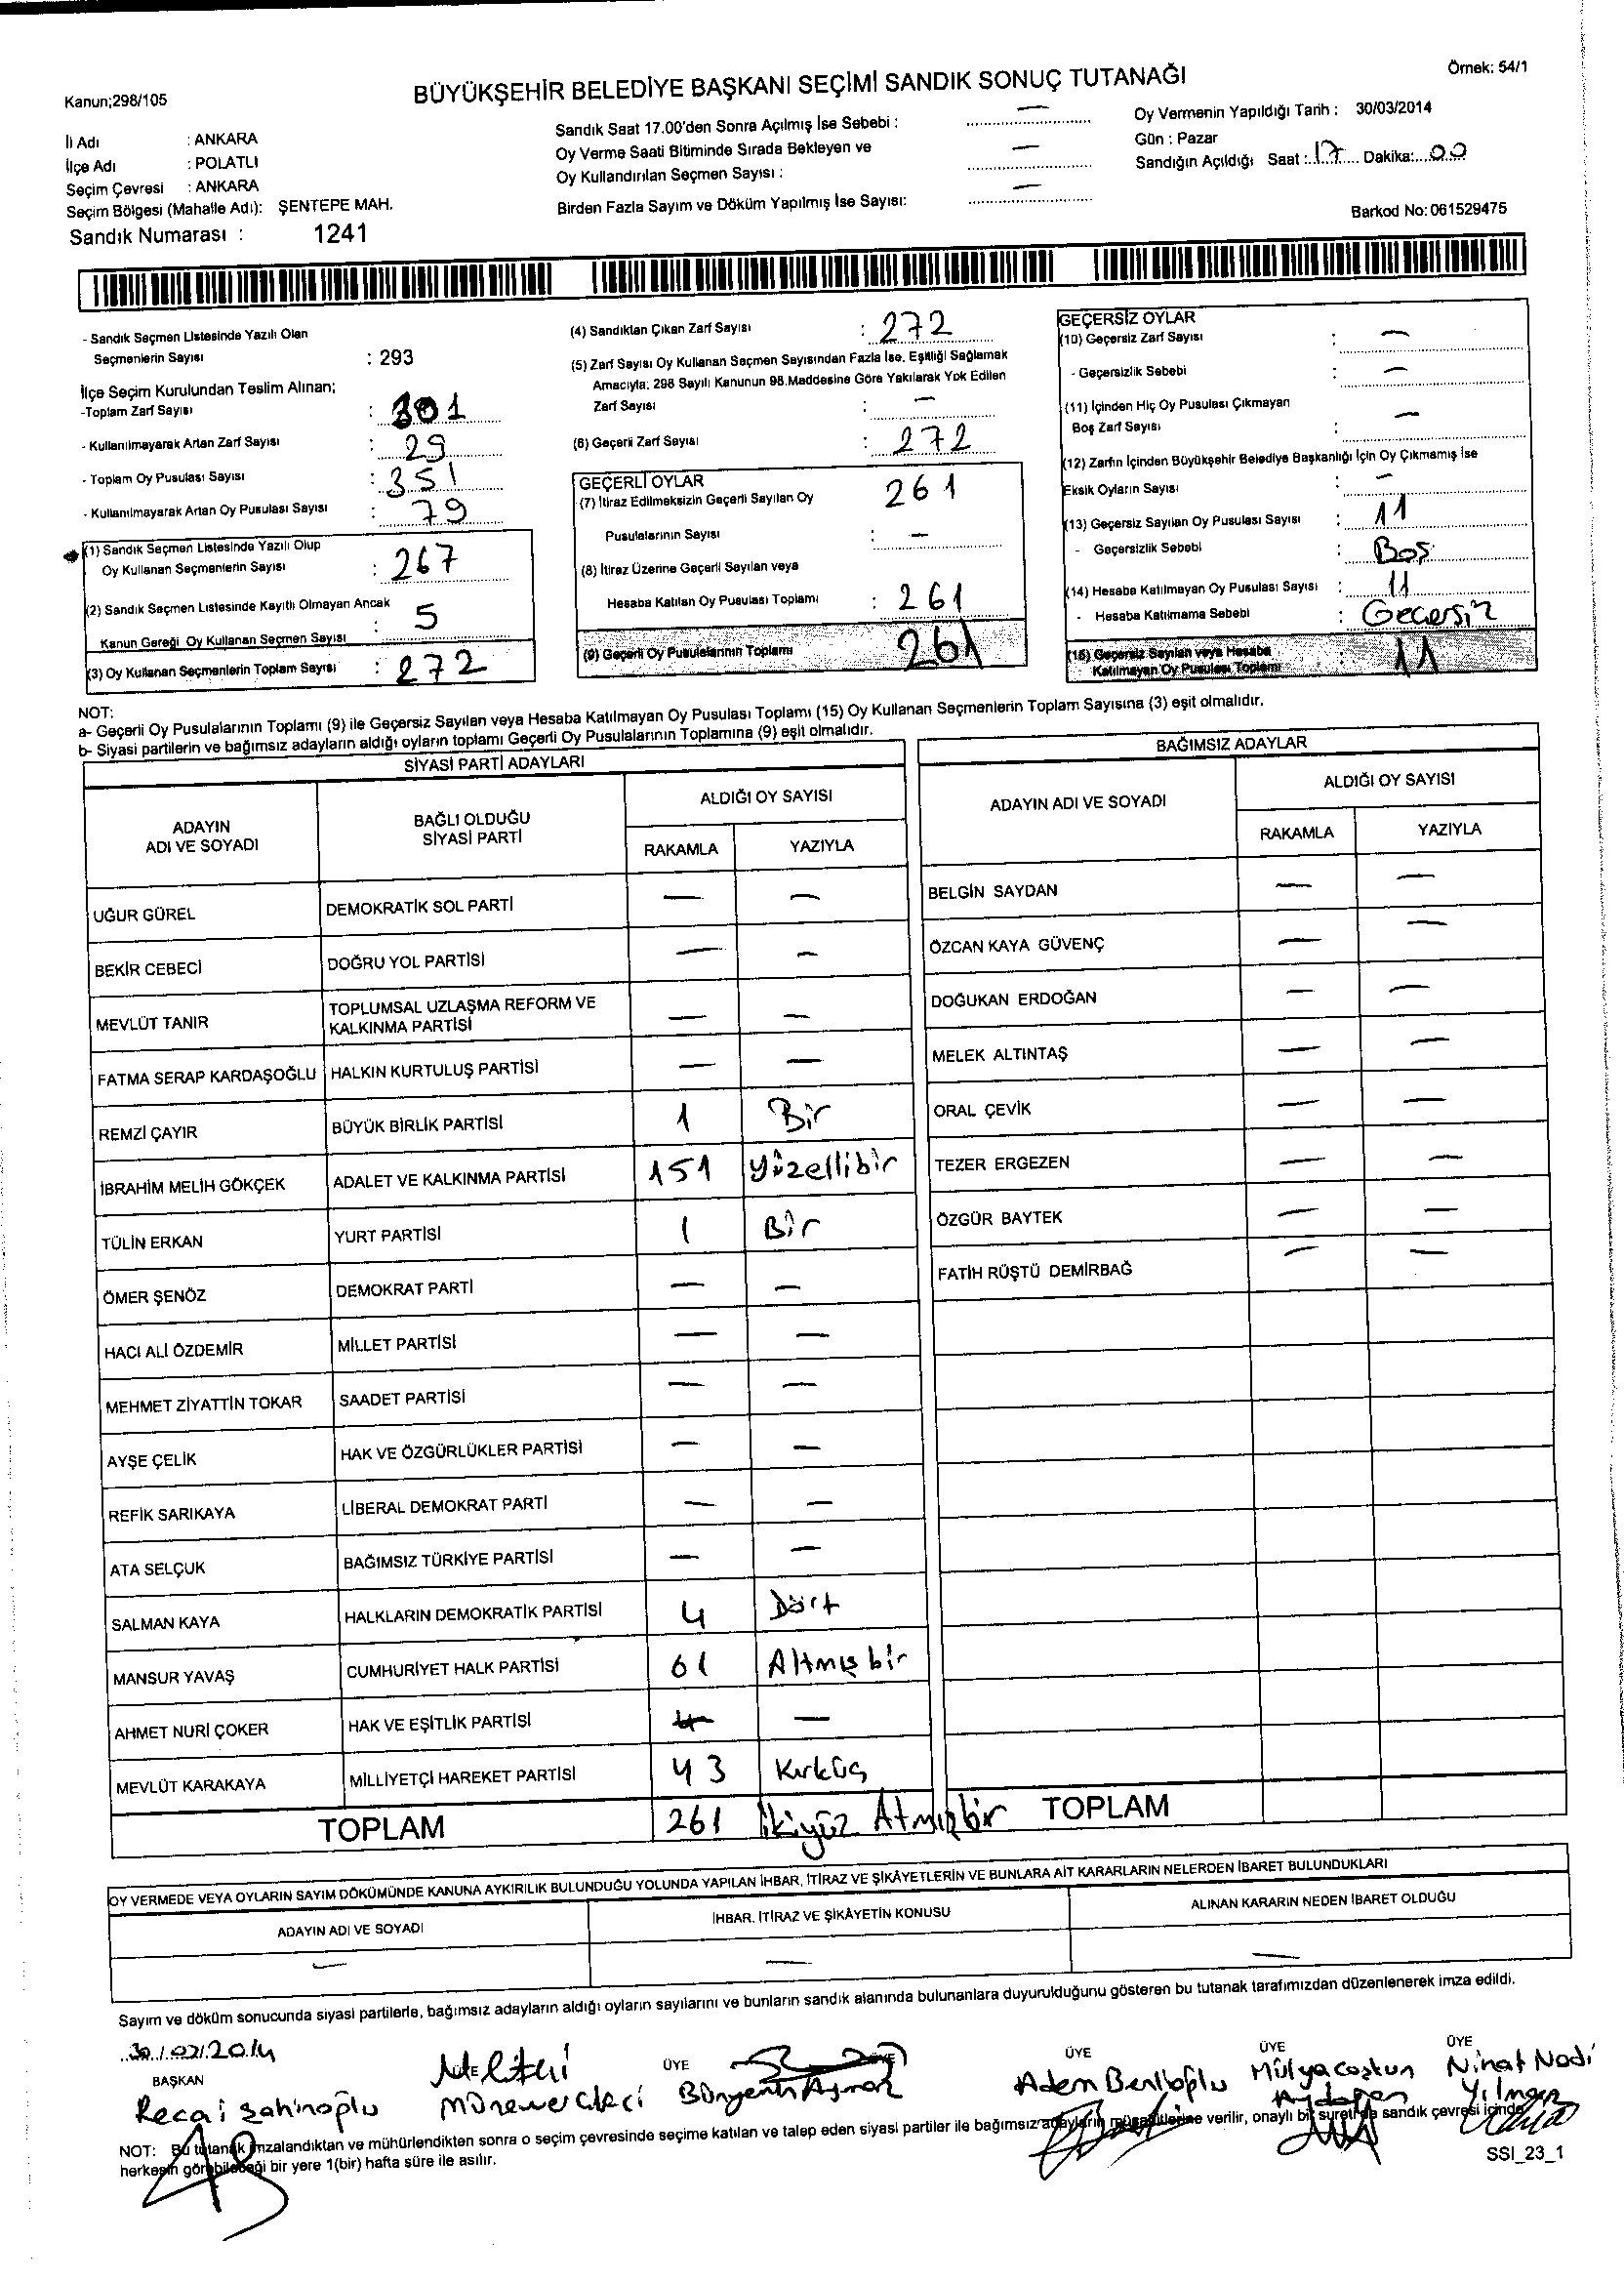 Kanun;298/105
BÜYÜKŞEHİR BELEDİYE BAŞKANI SEÇİMİ SANDIK SONUÇ TUTANAĞI
Örnek: 54/1
İl Adı : ANKARA
İlçe Adı : POLATLI
Seçim Çevresi : ANKARA
Seçim Bölgesi (Mahalle Adı): ŞENTEPE MAH.
Sandık Numarası : 1241
Sandık Saat 17.00'den Sonra Açılmış İse Sebebi : —
Oy Verme Saati Bitiminde Sırada Bekleyen ve
Oy Kullandırılan Seçmen Sayısı : —
Birden Fazla Sayım ve Döküm Yapılmış İse Sayısı: —
Oy Vermenin Yapıldığı Tarih : 30/03/2014
Gün : Pazar
Sandığın Açıldığı Saat : 17 Dakika: 00
Barkod No: 061529475
- Sandık Seçmen Listesinde Yazılı Olan
Seçmenlerin Sayısı : 293
İlçe Seçim Kurulundan Teslim Alınan;
-Toplam Zarf Sayısı : 301
- Kullanılmayarak Artan Zarf Sayısı : 29
- Toplam Oy Pusulası Sayısı : 351
- Kullanılmayarak Artan Oy Pusulası Sayısı : 79
(1) Sandık Seçmen Listesinde Yazılı Olup
Oy Kullanan Seçmenlerin Sayısı : 267
(2) Sandık Seçmen Listesinde Kayıtlı Olmayan Ancak
Kanun Gereği Oy Kullanan Seçmen Sayısı : 5
(3) Oy Kullanan Seçmenlerin Toplam Sayısı : 272
(4) Sandıktan Çıkan Zarf Sayısı : 272
(5) Zarf Sayısı Oy Kullanan Seçmen Sayısından Fazla İse, Eşitliği Sağlamak
Amacıyla; 298 Sayılı Kanunun 98.Maddesine Göre Yakılarak Yok Edilen
Zarf Sayısı : —
(6) Geçerli Zarf Sayısı : 272
GEÇERLİ OYLAR
(7) İtiraz Edilmeksizin Geçerli Sayılan Oy 261
Pusulalarının Sayısı : —
(8) İtiraz Üzerine Geçerli Sayılan veya
Hesaba Katılan Oy Pusulası Toplamı : 261
(9) Geçerli Oy Pusulalarının Toplamı 261
GEÇERSİZ OYLAR
(10) Geçersiz Zarf Sayısı : —
- Geçersizlik Sebebi : —
(11) İçinden Hiç Oy Pusulası Çıkmayan
Boş Zarf Sayısı : —
(12) Zarfın İçinden Büyükşehir Belediye Başkanlığı İçin Oy Çıkmamış İse
Eksik Oyların Sayısı : —
(13) Geçersiz Sayılan Oy Pusulası Sayısı : 11
- Geçersizlik Sebebi : Boş
(14) Hesaba Katılmayan Oy Pusulası Sayısı : 11
- Hesaba Katılmama Sebebi : Geçersiz
(15) Geçersiz Sayılan veya Hesaba
Katılmayan Oy Pusulası Toplamı 11
NOT:
a- Geçerli Oy Pusulalarının Toplamı (9) ile Geçersiz Sayılan veya Hesaba Katılmayan Oy Pusulası Toplamı (15) Oy Kullanan Seçmenlerin Toplam Sayısına (3) eşit olmalıdır.
b- Siyasi partilerin ve bağımsız adayların aldığı oyların toplamı Geçerli Oy Pusulalarının Toplamına (9) eşit olmalıdır.
SİYASİ PARTİ ADAYLARI
ADAYIN ADI VE SOYADI BAĞLI OLDUĞU SİYASİ PARTİ ALDIĞI OY SAYISI
RAKAMLA YAZIYLA
UĞUR GÜREL DEMOKRATİK SOL PARTİ — —
BEKİR CEBECİ DOĞRU YOL PARTİSİ — —
MEVLÜT TANIR TOPLUMSAL UZLAŞMA REFORM VE KALKINMA PARTİSİ — —
FATMA SERAP KARDAŞOĞLU HALKIN KURTULUŞ PARTİSİ — —
REMZİ ÇAYIR BÜYÜK BİRLİK PARTİSİ 1 Bir
İBRAHİM MELİH GÖKÇEK ADALET VE KALKINMA PARTİSİ 151 Yüzellibir
TÜLİN ERKAN YURT PARTİSİ 1 Bir
ÖMER ŞENÖZ DEMOKRAT PARTİ — —
HACI ALİ ÖZDEMİR MİLLET PARTİSİ — —
MEHMET ZİYATTİN TOKAR SAADET PARTİSİ — —
AYŞE ÇELİK HAK VE ÖZGÜRLÜKLER PARTİSİ — —
REFİK SARIKAYA LİBERAL DEMOKRAT PARTİ — —
ATA SELÇUK BAĞIMSIZ TÜRKİYE PARTİSİ — —
SALMAN KAYA HALKLARIN DEMOKRATİK PARTİSİ 4 Dört
MANSUR YAVAŞ CUMHURİYET HALK PARTİSİ 61 Altmışbir
AHMET NURİ ÇOKER HAK VE EŞİTLİK PARTİSİ — —
MEVLÜT KARAKAYA MİLLİYETÇİ HAREKET PARTİSİ 43 Kırküç
TOPLAM 261 İkiyüz Atmışbir
BAĞIMSIZ ADAYLAR
ADAYIN ADI VE SOYADI ALDIĞI OY SAYISI
RAKAMLA YAZIYLA
BELGİN SAYDAN — —
ÖZCAN KAYA GÜVENÇ — —
DOĞUKAN ERDOĞAN — —
MELEK ALTINTAŞ — —
ORAL ÇEVİK — —
TEZER ERGEZEN — —
ÖZGÜR BAYTEK — —
FATİH RÜŞTÜ DEMİRBAĞ — —
TOPLAM
OY VERMEDE VEYA OYLARIN SAYIM DÖKÜMÜNDE KANUNA AYKIRILIK BULUNDUĞU YOLUNDA YAPILAN İHBAR, İTİRAZ VE ŞİKÂYETLERİN VE BUNLARA AİT KARARLARIN NELERDEN İBARET BULUNDUKLARI
ADAYIN ADI VE SOYADI İHBAR, İTİRAZ VE ŞİKÂYETİN KONUSU ALINAN KARARIN NEDEN İBARET OLDUĞU
— — —
Sayım ve döküm sonucunda siyasi partilerle, bağımsız adayların aldığı oyların sayılarını ve bunların sandık alanında bulunanlara duyurulduğunu gösteren bu tutanak tarafımızdan düzenlenerek imza edildi.
30/03/2014
BAŞKAN ÜYE ÜYE ÜYE ÜYE
Recai Şahinoğlu Adem Nihat Nadi
Yılmaz
NOT: Bu tutanak imzalandıktan ve mühürlendikten sonra o seçim çevresinde seçime katılan ve talep eden siyasi partiler ile bağımsız adayların müşahitlerine verilir, onaylı bir sureti de sandık çevresi içinde
herkesin görebileceği bir yere 1(bir) hafta süre ile asılır.
SSI_23_1